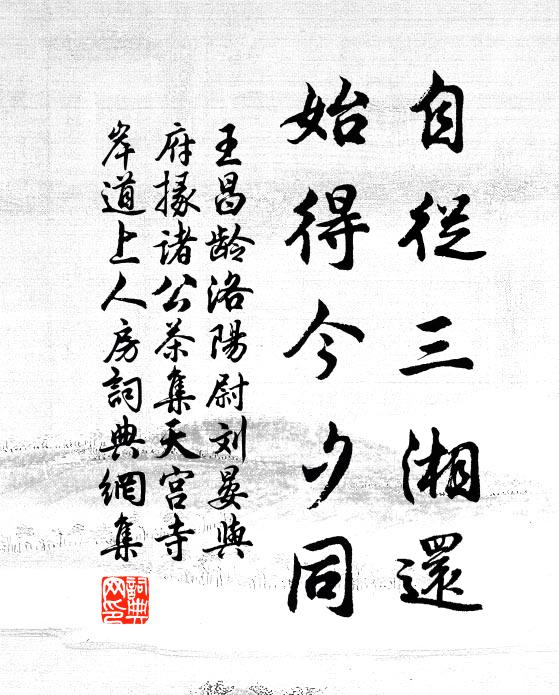 自從三湘還
始得今夕同
王昌龄洛陽尉刘晏與
府掾诸公茶集天宫寺
岸道上人房詞典網集
詞典